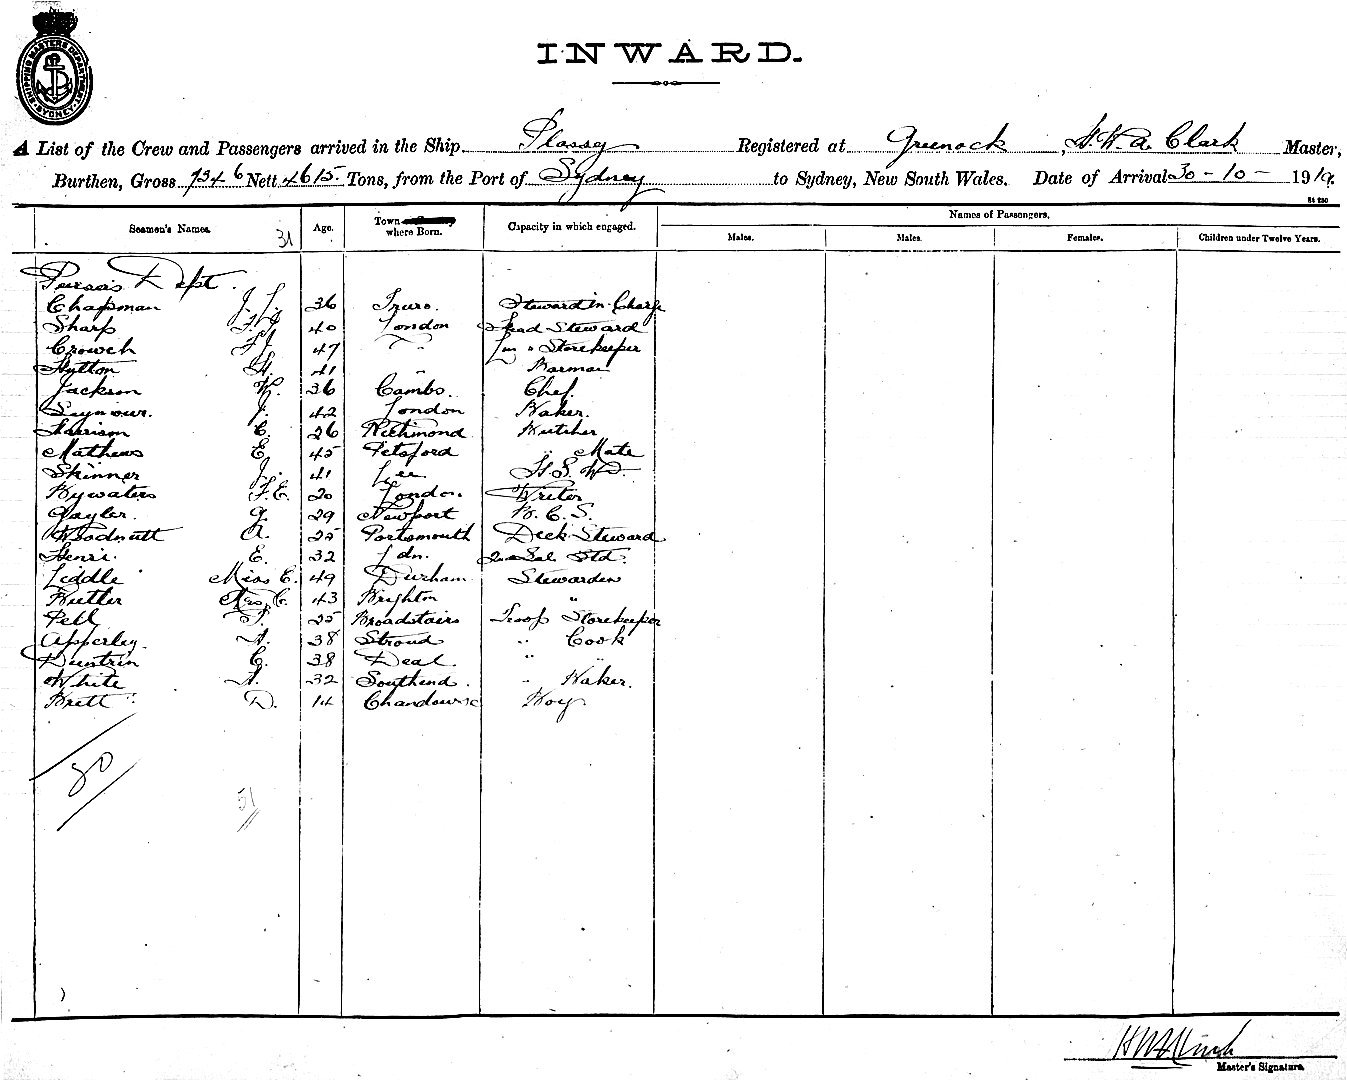 SHIPPING MASTERS DEPARTMENT SYDNEY
INWARD.
A List of the Crew and Passengers arrived in the Ship Plassy Registered at Greenock, H.W.A. Clark Master,
Burthen, Gross 7346 Nett 4615 Tons, from the Port of Sydney to Sydney, New South Wales. Date of Arrival 30-10-1919.
St 230
Seamen's Names. 31 Age. Town where Born. Capacity in which engaged. Names of Passengers.
Males. Males. Females. Children under Twelve Years.
Purser's Dept.
Chapman J. L. 36 Truro. Steward in Charge
Sharp 40 London Head Steward
Crouch F J 47 " " Storekeeper
Hutton H. 41 " Barman
Jackson W. 36 Cambs. Chef.
Seymour. J. 42 London Baker.
Harrison C. 26 Richmond Butcher
Mathews E 45 Petsford " Mate
Skinner J. 41 Lee
Bywaters F.E. 20 London. Writer
Gayler. G. 29 Newport B.C.S.
Woodnutt A. 25 Portsmouth Deck Steward
Henri. E. 32 Ldn.
Liddle Miss E. 49 Durham Stewardess
Butler Mrs C. 43 Brighton "
Pell F. 25 Broadstairs Troop Storekeeper
Apperley. A. 38 Stroud " Cook
Dunstrin C. 38 Deal. " "
White A. 32 Southend. " Baker.
Brett D. 14 Boy
80
51
Master's Signature.